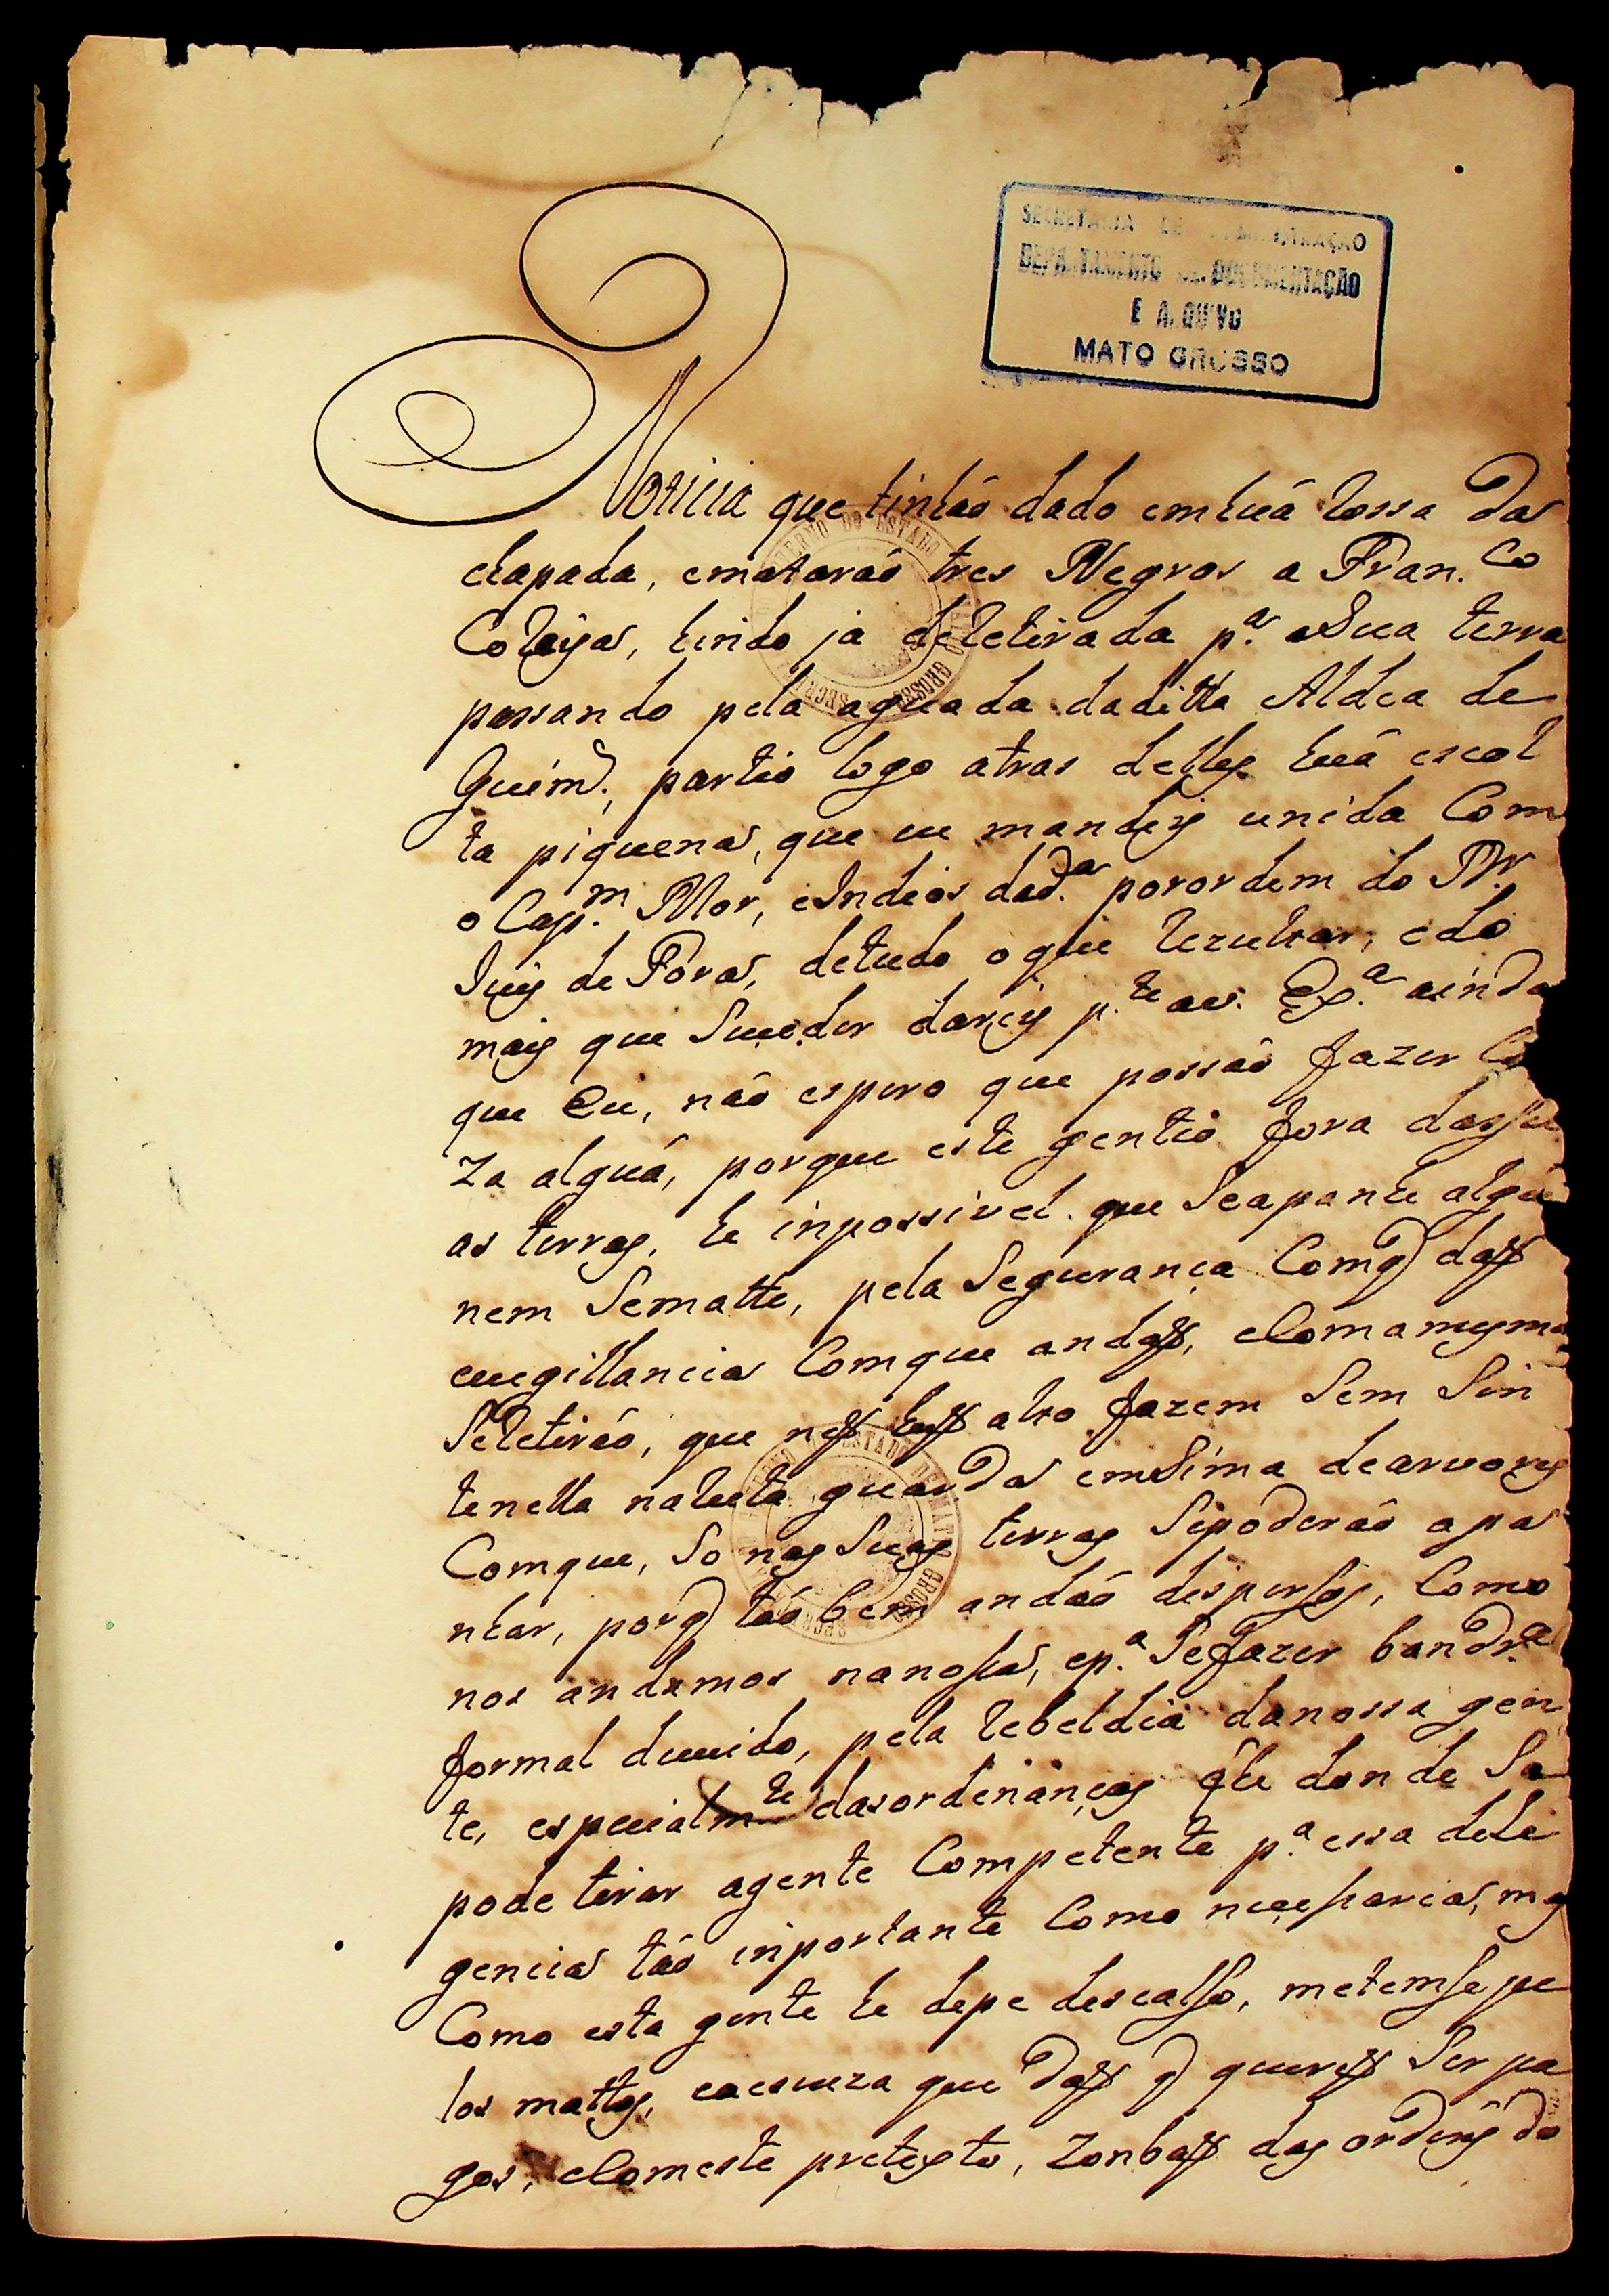 SECRETARIA DE ADMINISTRAÇÃO
DEPARTAMENTO DE DOCUMENTAÇÃO
E ARQUIVO
MATO GROSSO
Noticia que tinhaõ dado em huã Rossa da
chapada, emataraõ tres Negros a Fran.co
hindo ja deRetirada p.a aSua terra
passando pela aguada daditta Aldea de
Guim.es, partio logo atras delles huã escol
ta piquena, que eu mandey unida Com
o Cap.m Mor, eIndios dad.a porordem do
Juis de Fóra, detudo oque Rezultar, edo
mais que Suceder darey p.te aV. Ex.a ainda
que Eu, não espero que possaõ fazer Co
za alguã, porque este gentio fora dassu
as terras, he inpossivel que Seapanhe algũ
nem Sematte, pela Segurança Comq
evegillancia Comque andaõ, eComamesma
SeRetiraõ, que naõ alto fazem Sem Sin
tenella naReta guarda emSima dearvores
Comque, So nas Suas terras Sepoderaõ apa
nhar, porq taõ bem andaõ dispersos, Como
nos andamos nanossa, ep.a Sefazer band.ra
formal duvido, pela Rebeldia danossa gen
te, especialm.te dasordenanças q he donde Se
pode tirar agente Competente p.a essa deli
gencia taõ inportante Como necessaria, mas
Como esta gente he depe descalso, metemse pe
los mattos, eaescuza que daõ q querem Ser pa
gos, eComeste pretexto, Zonbaõ das ordens do